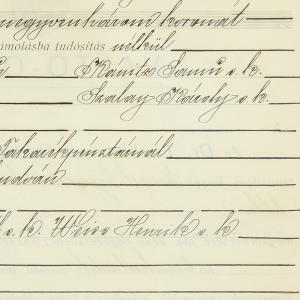 negyvenhárom koronát
ámolásba tudósítás nélkül
Kánitz Samu s. k.
Szalay Károly s. k.
Takarékpénztárnál
s. k. Weiss Henrik s. k.